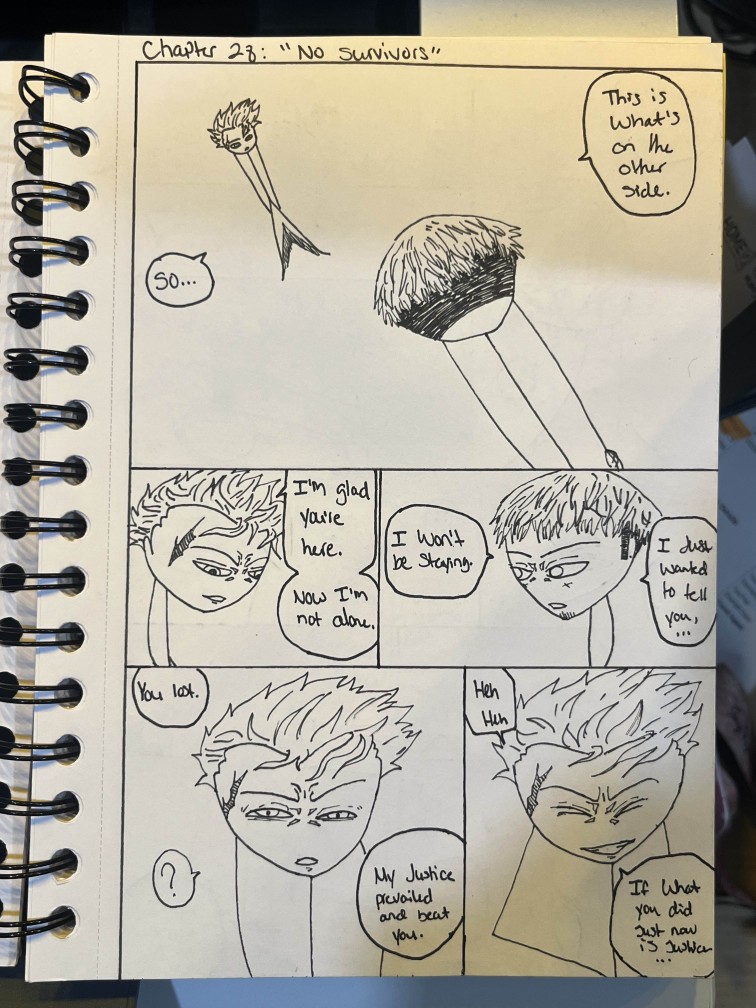 Chapter 28: "No Survivors"
This is
What's
on the
other
side.
So...
I'm glad
you're
here.
Now I'm
not alone.
I Won't
be staying.
I Just
wanted
to tell
you,
...
You lost.
?
My Justice
prevailed
and beat
you.
Heh
Heh
If What
you did
Just now
is Justice
...